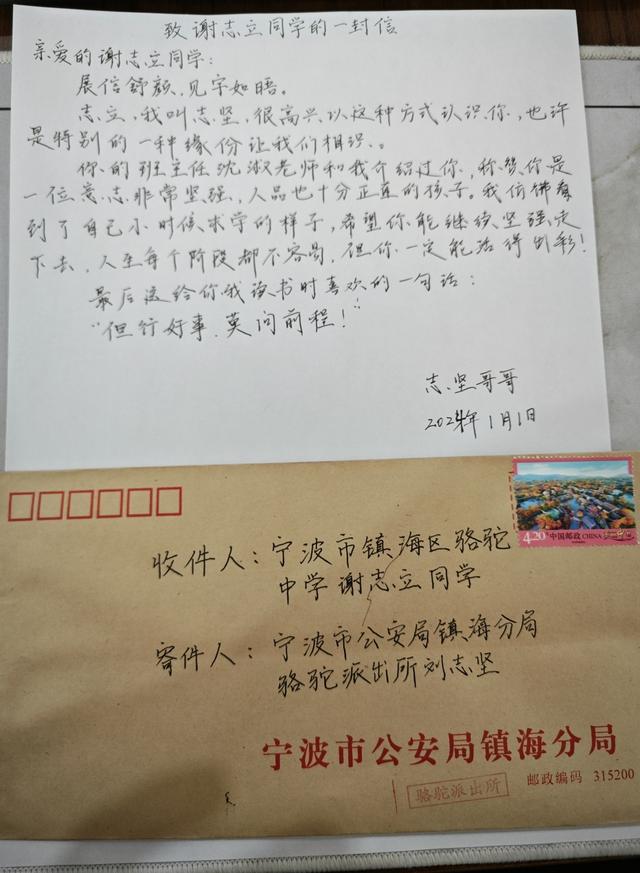 致谢志立同学的一封信
亲爱的谢志立同学:
展信舒颜,见字如晤。
志立,我叫志坚,很高兴以这种方式认识你,也许
是特别的一种缘份让我们相识。
你的班主任沈淑老师和我介绍过你,称赞你是
一位意志非常坚强,人品也十分正直的孩子。我仿佛看
到了自己小时候求学的样子,希望你能继续坚强走
下去,人生每个阶段都不容易,但你一定能活得出彩!
最后送给你我读书时喜欢的一句话:
“但行好事,莫问前程!”
志坚哥哥
2024年1月1日
4.20元 中国邮政 CHINA
收件人:宁波市镇海区骆驼
中学谢志立同学
寄件人:宁波市公安局镇海分局
骆驼派出所刘志坚
宁波市公安局镇海分局
邮政编码 315200
骆驼派出所